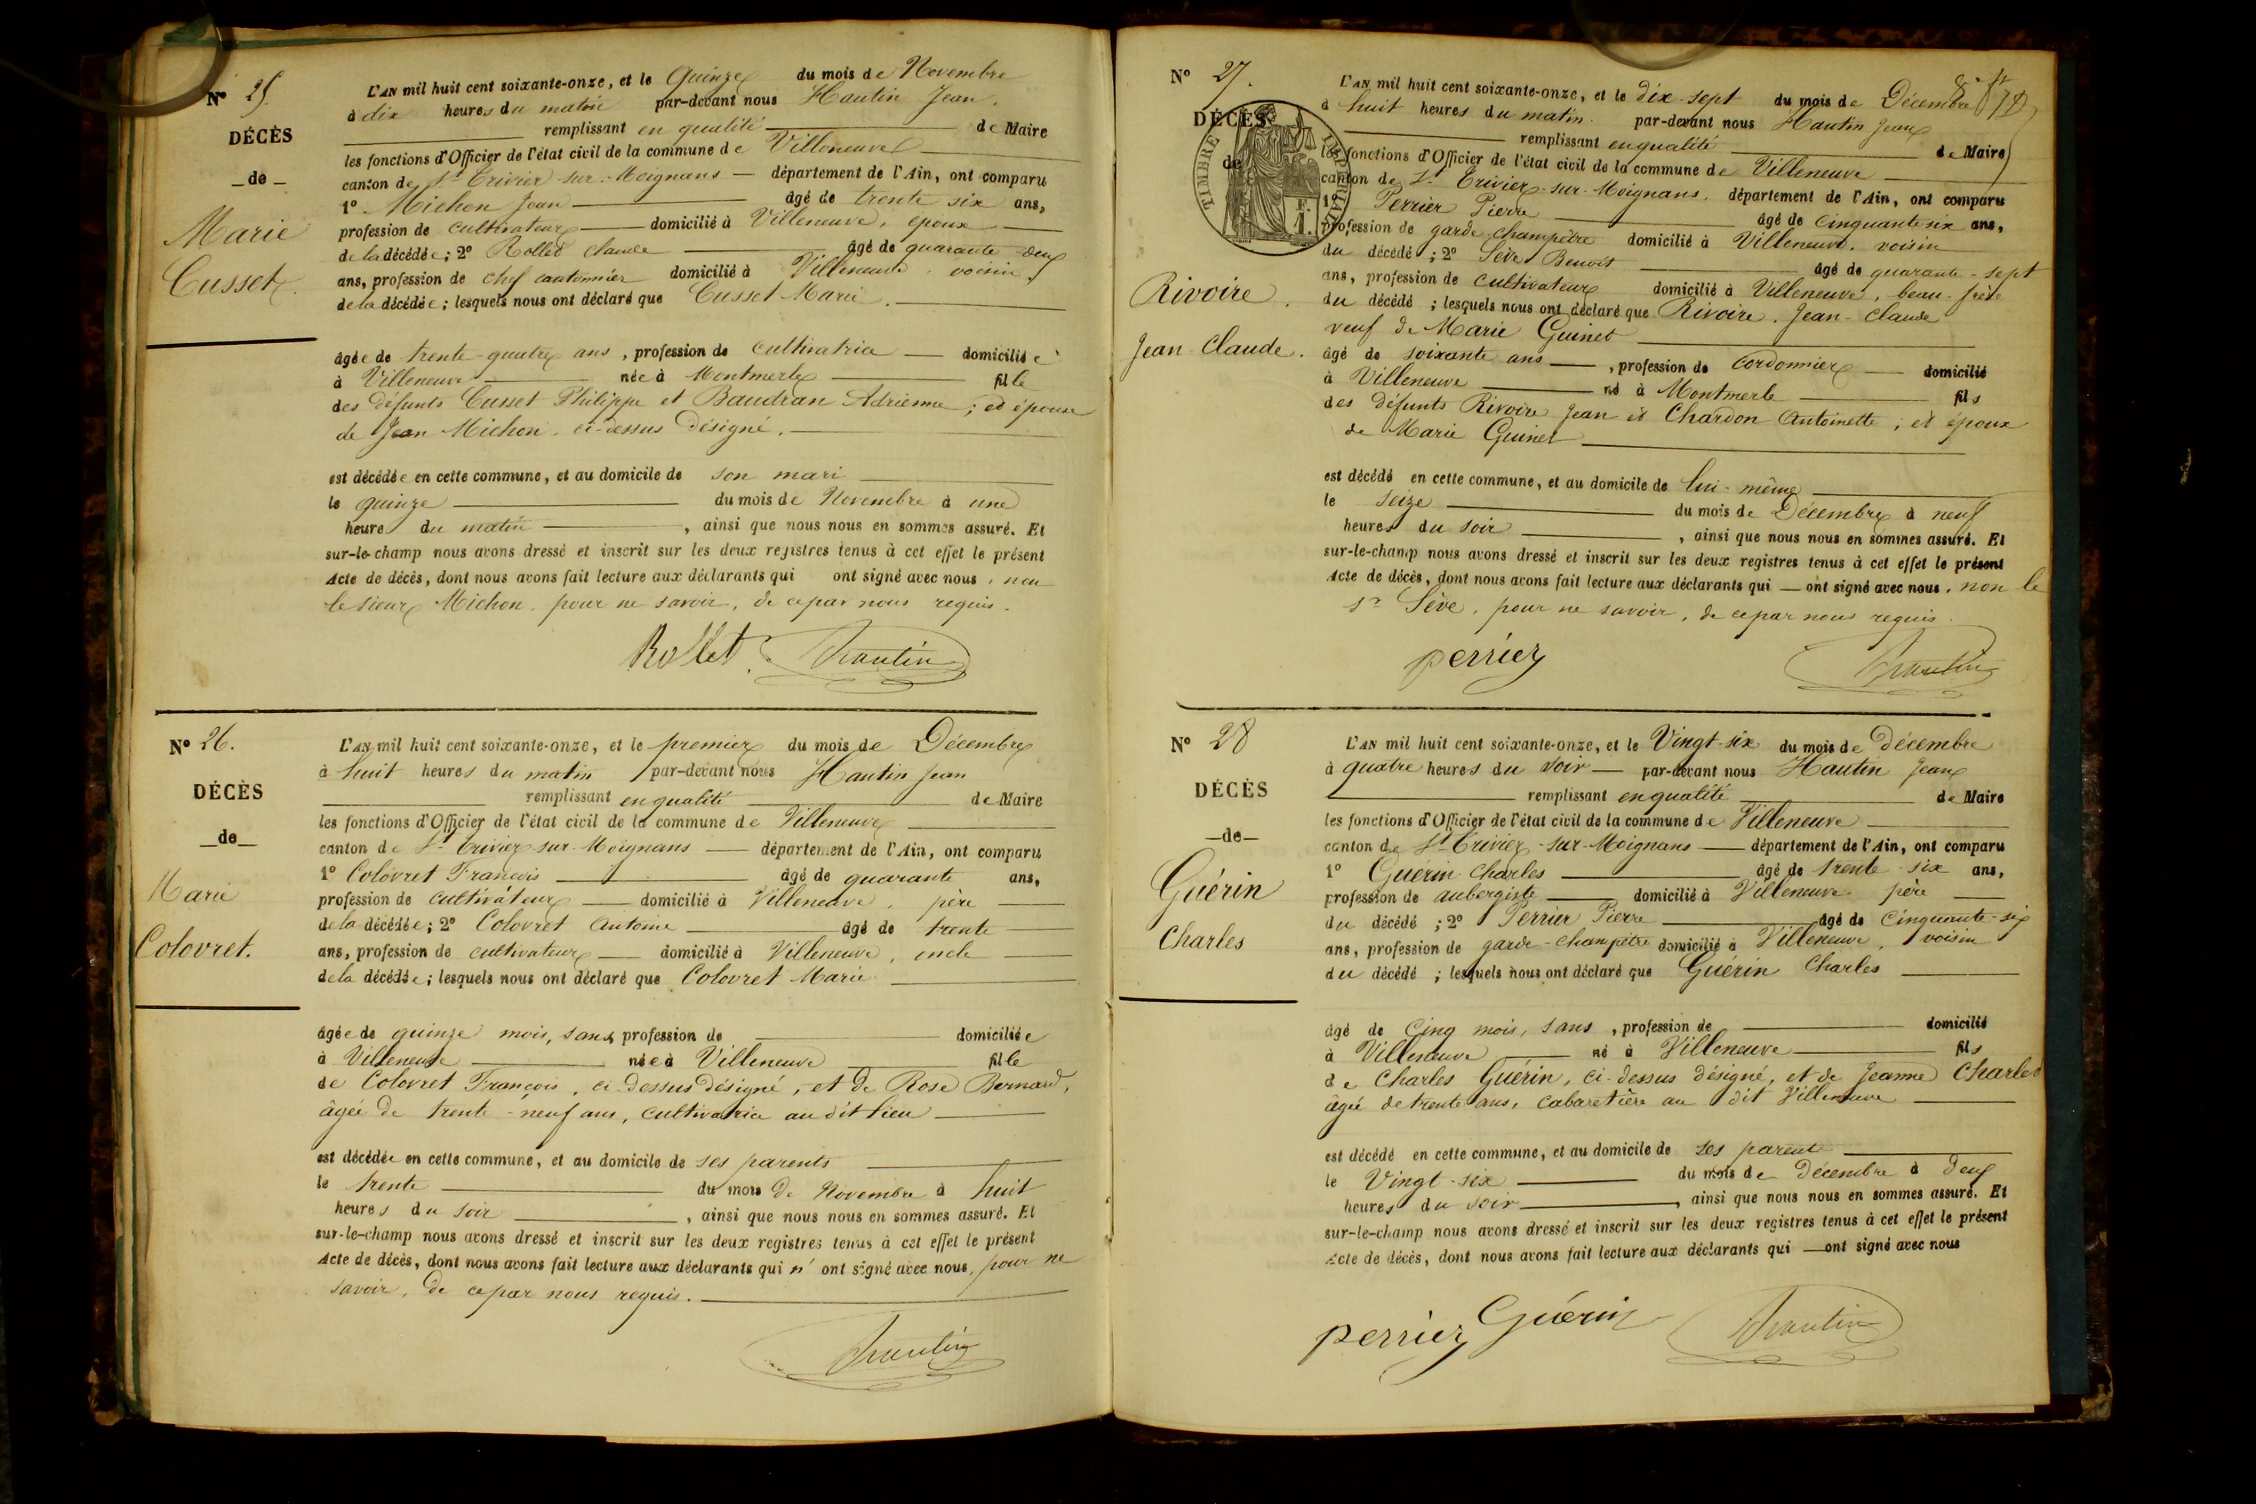 N° 25.
DÉCÈS
de
Marie
Cusset
L'AN mil huit cent soixante-onze, et le Quinze du mois de Novembre
à dix heures du matin par-devant nous Hautin Jean.
remplissant en qualité de Maire
les fonctions d'Officier de l'état civil de la commune de Villeneuve
canton de St Trivier-sur-Moignans département de l'Ain, ont comparu
1° Michon Jean âgé de trente six ans,
profession de cultivateur domicilié à Villeneuve, époux
de la décédée; 2° Rollet Claude âgé de quarante-deux
ans, profession de chef cantonnier domicilié à Villeneuve, voisin
de la décédée; lesquels nous ont déclaré que Cusset Marie.
âgée de trente-quatre ans, profession de cultivatrice domiciliée
à Villeneuve née à Montmerle fille
des défunts Cusset Philippe et Baudran Adrienne; et épouse
de Jean Michon, ci-dessus désigné.
est décédée en cette commune, et au domicile de son mari
le quinze du mois de Novembre à une
heure du matin, ainsi que nous nous en sommes assuré. Et
sur-le-champ nous avons dressé et inscrit sur les deux registres tenus à cet effet le présent
Acte de décès, dont nous avons fait lecture aux déclarants qui ont signé avec nous, non
le sieur Michon, pour ne savoir, de ce par nous requis.
Rollet Hautin
N° 26.
DÉCÈS
de
Marie
Colovret.
L'AN mil huit cent soixante-onze, et le premier du mois de Décembre
à huit heures du matin par-devant nous Hautin Jean
remplissant en qualité de Maire
les fonctions d'Officier de l'état civil de la commune de Villeneuve
canton de St Trivier-sur-Moignans département de l'Ain, ont comparu
1° Colovret François âgé de quarante ans,
profession de cultivateur domicilié à Villeneuve, père
de la décédée; 2° Colovret Antoine âgé de trente
ans, profession de cultivateur domicilié à Villeneuve, oncle
de la décédée; lesquels nous ont déclaré que Colovret Marie
âgée de quinze mois, sans profession de domiciliée
à Villeneuve née à Villeneuve fille
de Colovret François, ci-dessus désigné, et de Rose Bernard,
âgée de trente-neuf ans, cultivatrice au dit lieu
est décédée en cette commune, et au domicile de ses parents
le trente du mois de Novembre à huit
heures du soir, ainsi que nous nous en sommes assuré. Et
sur-le-champ nous avons dressé et inscrit sur les deux registres tenus à cet effet le présent
Acte de décès, dont nous avons fait lecture aux déclarants qui n'ont signé avec nous, pour ne
savoir, de ce par nous requis.
Hautin
N° 27.
DÉCÈS
de
TIMBRE IMPÉRIAL
Rivoire.
Jean-Claude.
L'AN mil huit cent soixante-onze, et le dix-sept du mois de Décembre
à huit heures du matin. par-devant nous Hautin Jean
remplissant en qualité de Maire
les fonctions d'Officier de l'état civil de la commune de Villeneuve
canton de St Trivier-sur-Moignans, département de l'Ain, ont comparu
1° Perrier Pierre âgé de cinquante-six ans,
profession de garde-champêtre domicilié à Villeneuve, voisin
du décédé; 2° Sève Benoît âgé de quarante-sept
ans, profession de cultivateur domicilié à Villeneuve, beau-frère
du décédé; lesquels nous ont déclaré que Rivoire, Jean-Claude
veuf de Marie Guinet
âgé de soixante ans, profession de cordonnier domicilié
à Villeneuve né à Montmerle fils
des défunts Rivoire Jean et Chardon Antoinette; et époux
de Marie Guinet
est décédé en cette commune, et au domicile de lui-même
le seize du mois de Décembre à neuf
heures du soir, ainsi que nous nous en sommes assuré. Et
sur-le-champ nous avons dressé et inscrit sur les deux registres tenus à cet effet le présent
Acte de décès, dont nous avons fait lecture aux déclarants qui ont signé avec nous, non le
sr Sève, pour ne savoir, de ce par nous requis.
perrier Hautin
N° 28
DÉCÈS
de
Guérin
Charles
L'AN mil huit cent soixante-onze, et le Vingt-six du mois de décembre
à quatre heures du soir par-devant nous Hautin Jean
remplissant en qualité de Maire
les fonctions d'Officier de l'état civil de la commune de Villeneuve
canton de St Trivier-sur-Moignans département de l'Ain, ont comparu
1° Guérin Charles âgé de trente-six ans,
profession de aubergiste domicilié à Villeneuve père
du décédé; 2° Perrier Pierre âgé de cinquante-six
ans, profession de garde-champêtre domicilié à Villeneuve, voisin
du décédé; lesquels nous ont déclaré que Guérin Charles
âgé de Cinq mois, sans, profession de domicilié
à Villeneuve né à Villeneuve fils
de Charles Guérin, ci-dessus désigné, et de Jeanne Charles
âgée de trente ans, cabaretière au dit Villeneuve
est décédé en cette commune, et au domicile de ses parents
le Vingt-six du mois de décembre à deux
heures du soir, ainsi que nous nous en sommes assuré. Et
sur-le-champ nous avons dressé et inscrit sur les deux registres tenus à cet effet le présent
Acte de décès, dont nous avons fait lecture aux déclarants qui ont signé avec nous
perrier Guérin Hautin